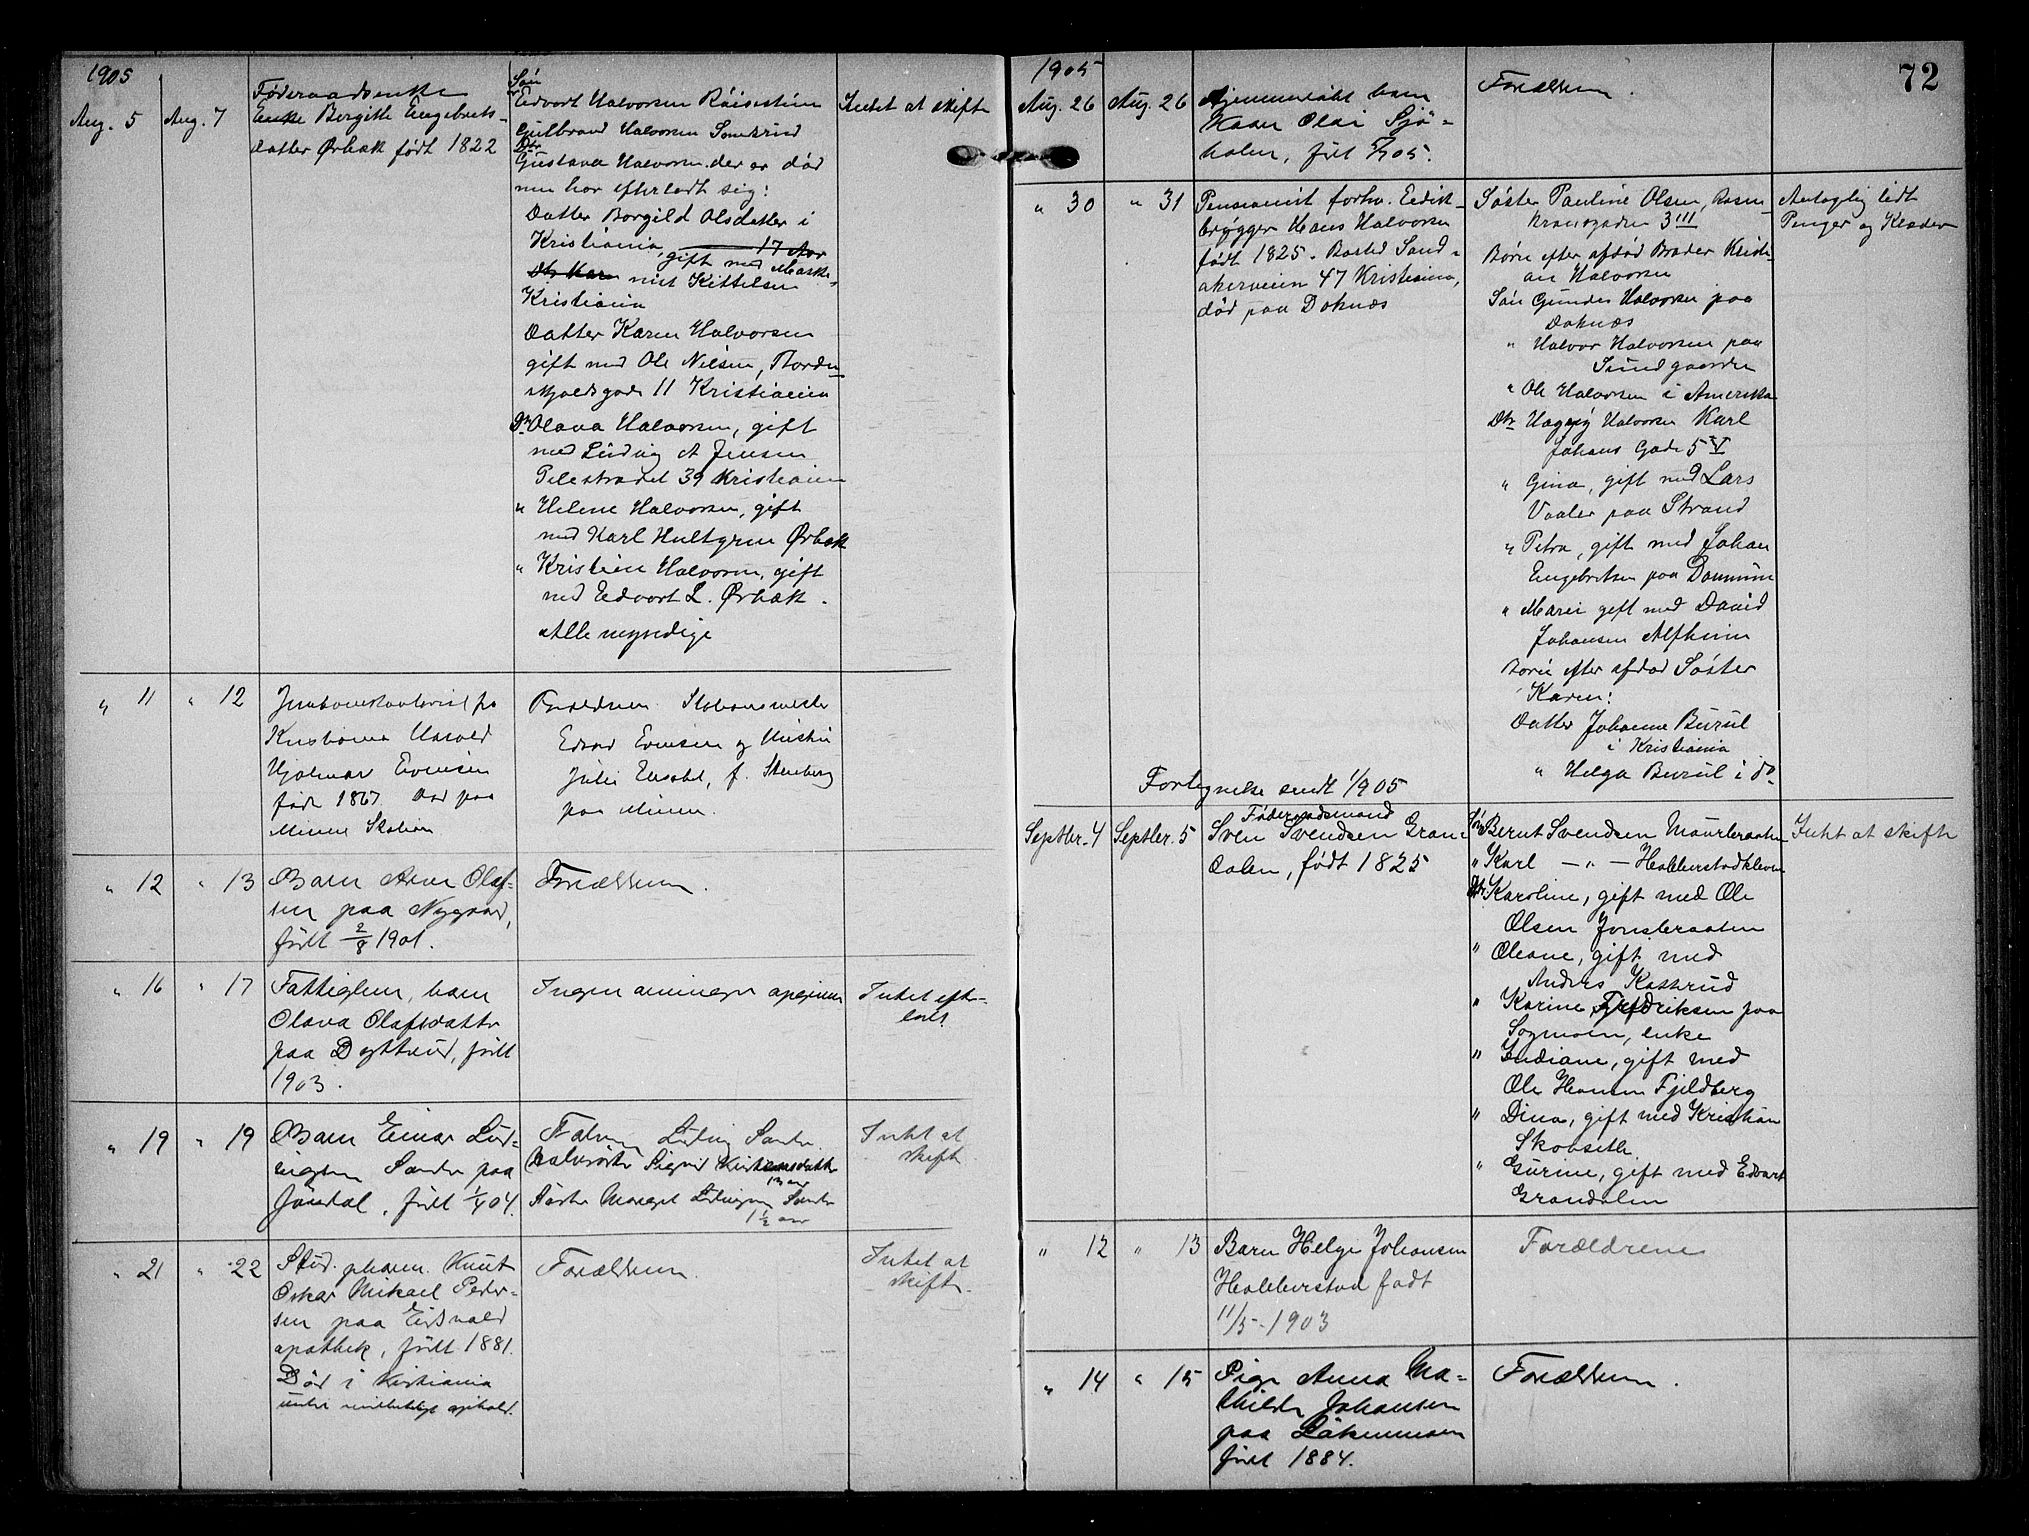 1905
Aug. 5
Aug. 7
Føderaadsenke
Enke Birgitte Engebrets-
datter Ørbæk født 1822
Søn
Edvart Halvorsen
Gulbrand Halvorsen
Dtr
Gustava Halvorsen der er død
men har efterladt sig:
Datter Borgild Olsdatter i
Kristiania, 17 Aar
gift med Maske
Dtr Karen nist Kittelsen
Kristiania
Datter Karen Halvorsen
gift med Ole Nilsen, Torden-
skjoldsgade 11 Kristiania
Dtr Olava Halvorsen, gift
med Ludvig A Jensen
Pilestrædet 39 Kristiania
" Helene Halvorsen, gift
med Karl Hultgren Ørbæk
" Kristine Halvorsen, gift
med Edvart L. Ørbæk.
Alle myndige
Intet at skifte
" 11
" 12
Kristiania Harald
Hjalmar Evensen
født 1867. Død paa
Minne Station
Forældrene Stationsmester
Edvard Evensen og Hustru
Julie, f. Stenberg
paa Minne.
" 12
" 13
Barn Arne Olaf-
sen paa Nygaard,
født 2/8 1901.
Forældrene.
" 16
" 17
Fattiglem, barn
Olava Olafsdatter
paa Dyttrud, født
1903.
Ingen arvinger opgivne
Intet efter-
ladt
" 19
" 19
Barn Einar Lud-
vigsen Sander paa
Jøndal, født 1/4 04.
Faderen Ludvig Sander
Halvsøster Sigrid Kristiansdatter
13 aar
Søster Margit Ludvigsen Sander
1 1/2 aar
Intet at
skifte
" 21
" 22
Stud. pharm. Knut
Oskar Mikael Peder-
sen paa Eidsvold
apothek, født 1881.
Død i Kristiania
under midlertidigt ophold.
Forældrene.
Intet at
skifte.
1905
72
Aug. 26
Aug. 26
Hjemmedøbt barn
Kaare Olai Sjø-
holen, født 05.
Forældrene.
" 30
" 31
Pensionist forhv. Eddik-
brygger Hans Halvorsen
født 1825. Bosted Sand-
akerveien 47 Kristiania,
død paa Doknæs
Søster Pauline Olsen, Rosen-
kransgaden 3 III
Børn efter afdød Broder Kristi-
an Halvorsen
Søn Gunder Halvorsen paa
Doknæs
" Halvor Halvorsen paa
Sundgaarden
" Ole Halvorsen i Amerika
Dtr Halvorsen Karl
Johans Gade 5 V
" Gina, gift med Lars
Vaaler paa Strand
" Petra, gift med Johan
Engebretsen paa
" Marei gift med David
Johansen Alfheim
Børn efter afdød Søster
Karen:
Datter Johanne Burul
i Kristiania
" Helga Burul i do.
Antagelig lidt
Penger og Klæder
Fortegnelse sendt 1/9 05
Septbr. 4
Septbr. 5
Føderaadsmand
Sven Svendsen Gran-
dalen, født 1825
Søn Bernt Svendsen
" Karl — " — Habberstadkleven
Dtr. Karoline, gift med Ole
Olsen Jonsbraaten
" Oleane, gift med
Anders Kastrud
" Karine Fredriksen paa
Sogmoen, enke
" Indiane, gift med
Ole Hansen Fjeldberg
" Dina, gift med Kristian
Skobseth
" Gurine, gift med Edvart
Grandalen
Intet at skifte
" 12
" 13
Barn Helge Johansen
Habberstad født
11/5-1903
Forældrene
" 14
" 15
Pige Anna Ma-
thilde Johansen
paa
født 1884.
Forældrene.